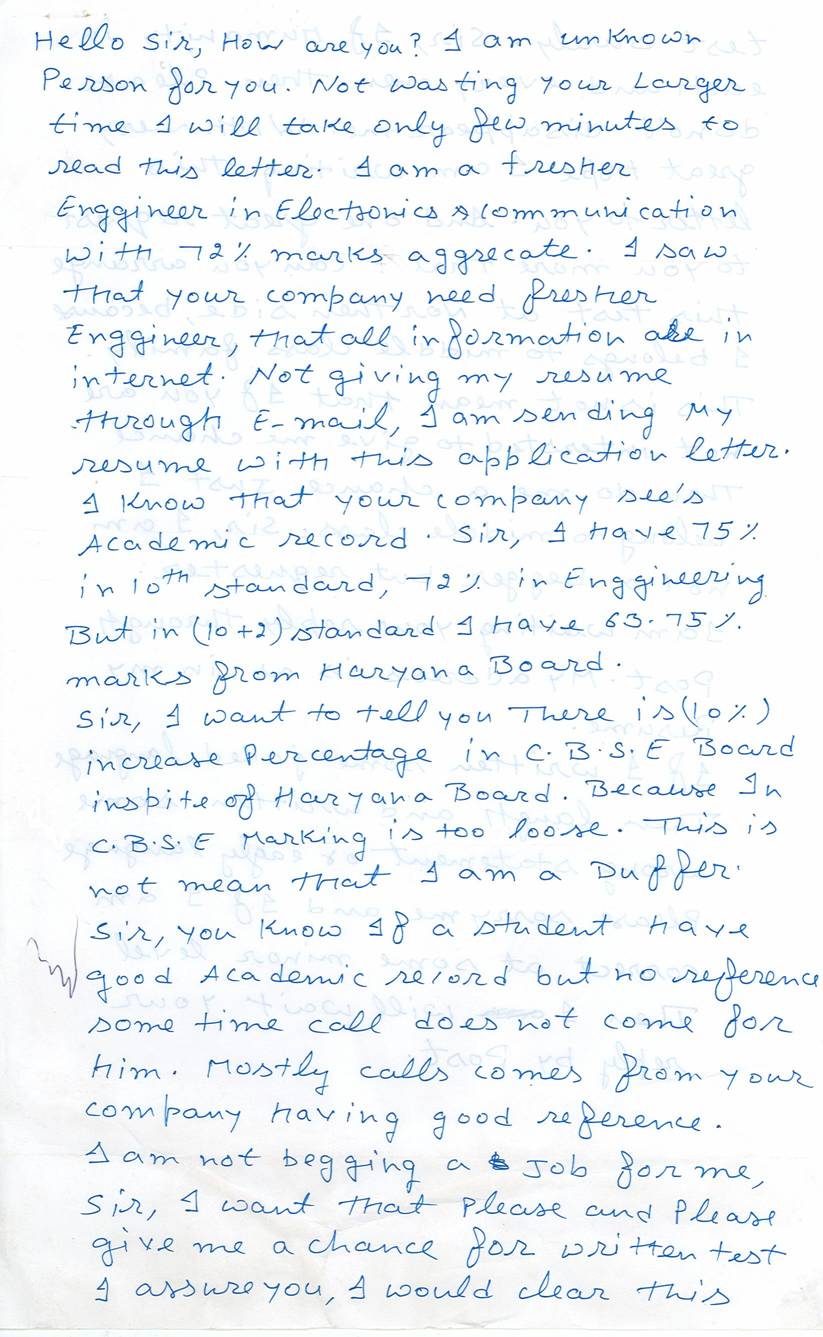 Hello Sir, How are you? I am unknown
Person for you. Not wasting your Larger
time I will take only few minutes to
read this letter. I am a fresher
Enggineer in Electronics & Communication
with 72% marks aggrecate. I saw
that your company need fresher
Enggineer, that all information are in
internet. Not giving my resume
through E-mail, I am sending My
resume with this application letter.
I Know that your company see's
Academic record. Sir, I have 75%
in 10th standard, 72% in Enggineering
But in (10+2) standard I have 63.75%.
marks from Haryana Board.
Sir, I want to tell you There is (10%)
increase Percentage in C.B.S.E Board
inspite of Haryana Board. Because In
C.B.S.E Marking is too loose. This is
not mean that I am a Duffer.
Sir, you know If a student have
good Academic record but no reference
some time call does not come for
him. Mostly calls comes from your
company having good reference.
I am not begging a Job for me,
Sir, I want that Please and Please
give me a chance for written test
I assure you, I would clear this